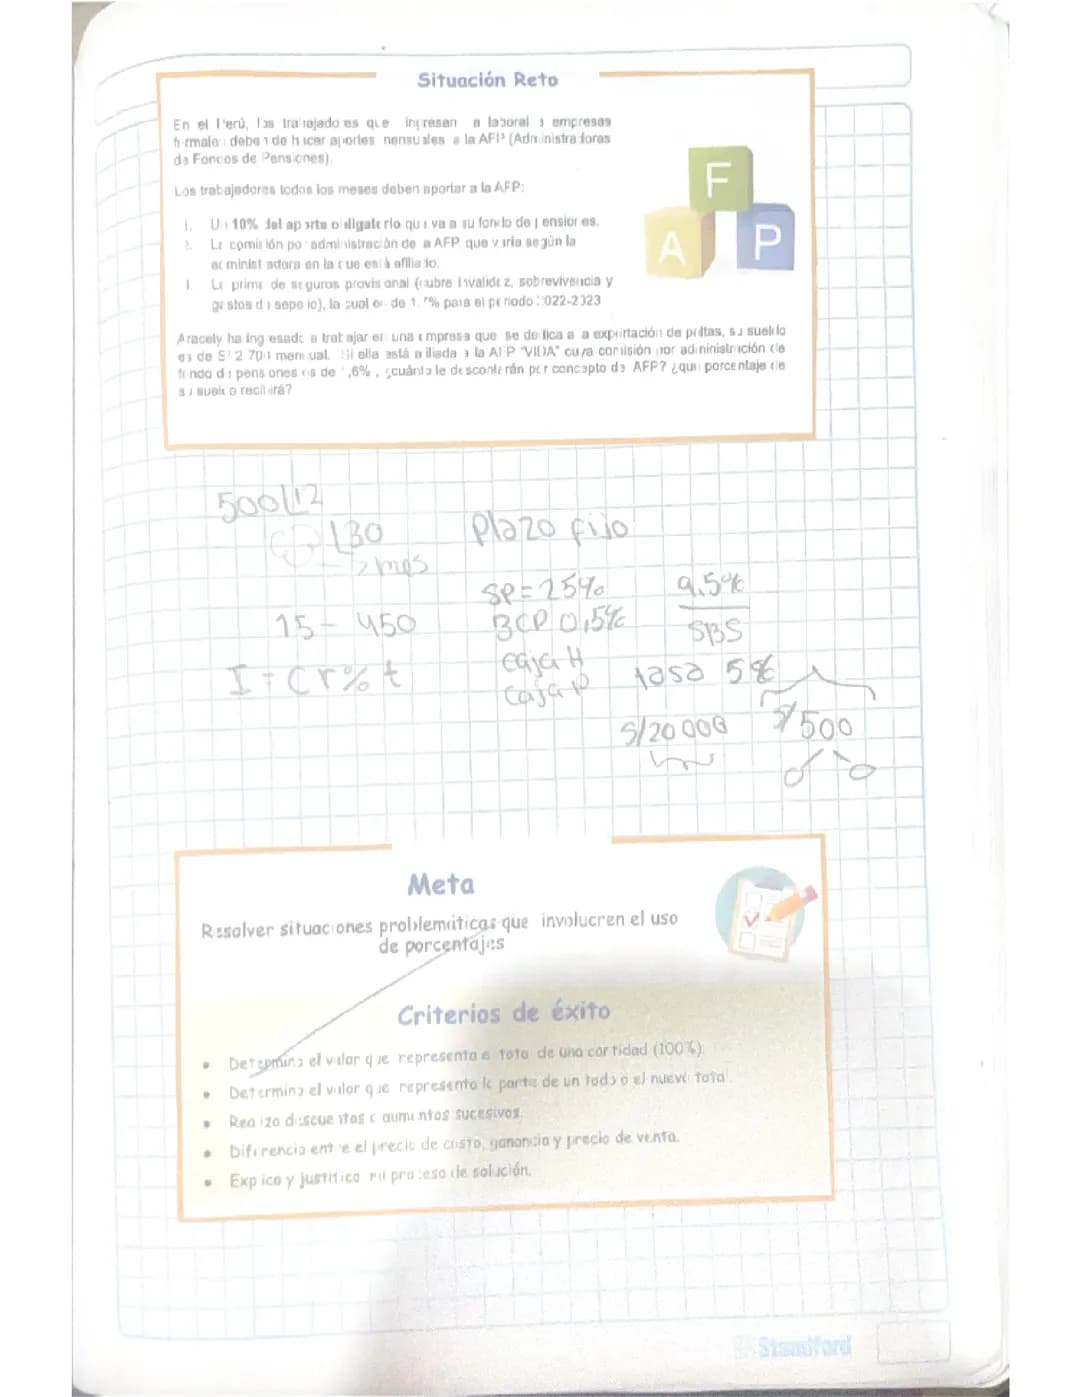 Situación Reto
En el Perú, los trabajadores que ingresan a laborar a empresas
formales deben de hacer aportes mensuales a la AFP (Administradoras
de Fondos de Pensiones).
Los trabajadores todos los meses deben aportar a la AFP:
1. Un 10% del aporte obligatorio que va a su fondo de pensiones.
2. La comisión por administración de la AFP que varía según la
administradora en la que está afiliado.
La prima de seguros provisional (cubre Invalidez, sobrevivencia y
gastos de sepelio), la cual es de 1,7% para el periodo 2022-2023
Aracely ha ingresado a trabajar en una empresa que se dedica a la exportación de paltas, su sueldo
es de S/ 2 700 mensual. Si ella está afiliada a la AFP "VIDA" cuya comisión por administración de
fondo de pensiones es de ,6%, ¿cuánto le descontarán por concepto de AFP? ¿qué porcentaje de
su sueldo recibirá?
F
A P
500 12
30
mes
Plazo fijo
SP = 25% 9,5%
15 - 450 BCP 0,5% SBS
I = Cr% t caja H tasa 5%
caja P
S/20 000 S/500
Meta
Resolver situaciones problemáticas que involucren el uso
de porcentajes
Criterios de éxito
• Determina el valor que representa el total de una cantidad (100%).
• Determina el valor que representa la parte de un todo o el nuevo total.
• Realizo descuentos o aumentos sucesivos.
• Diferencio entre el precio de costo, ganancia y precio de venta.
• Explico y justifico mi proceso de solución.
Standford